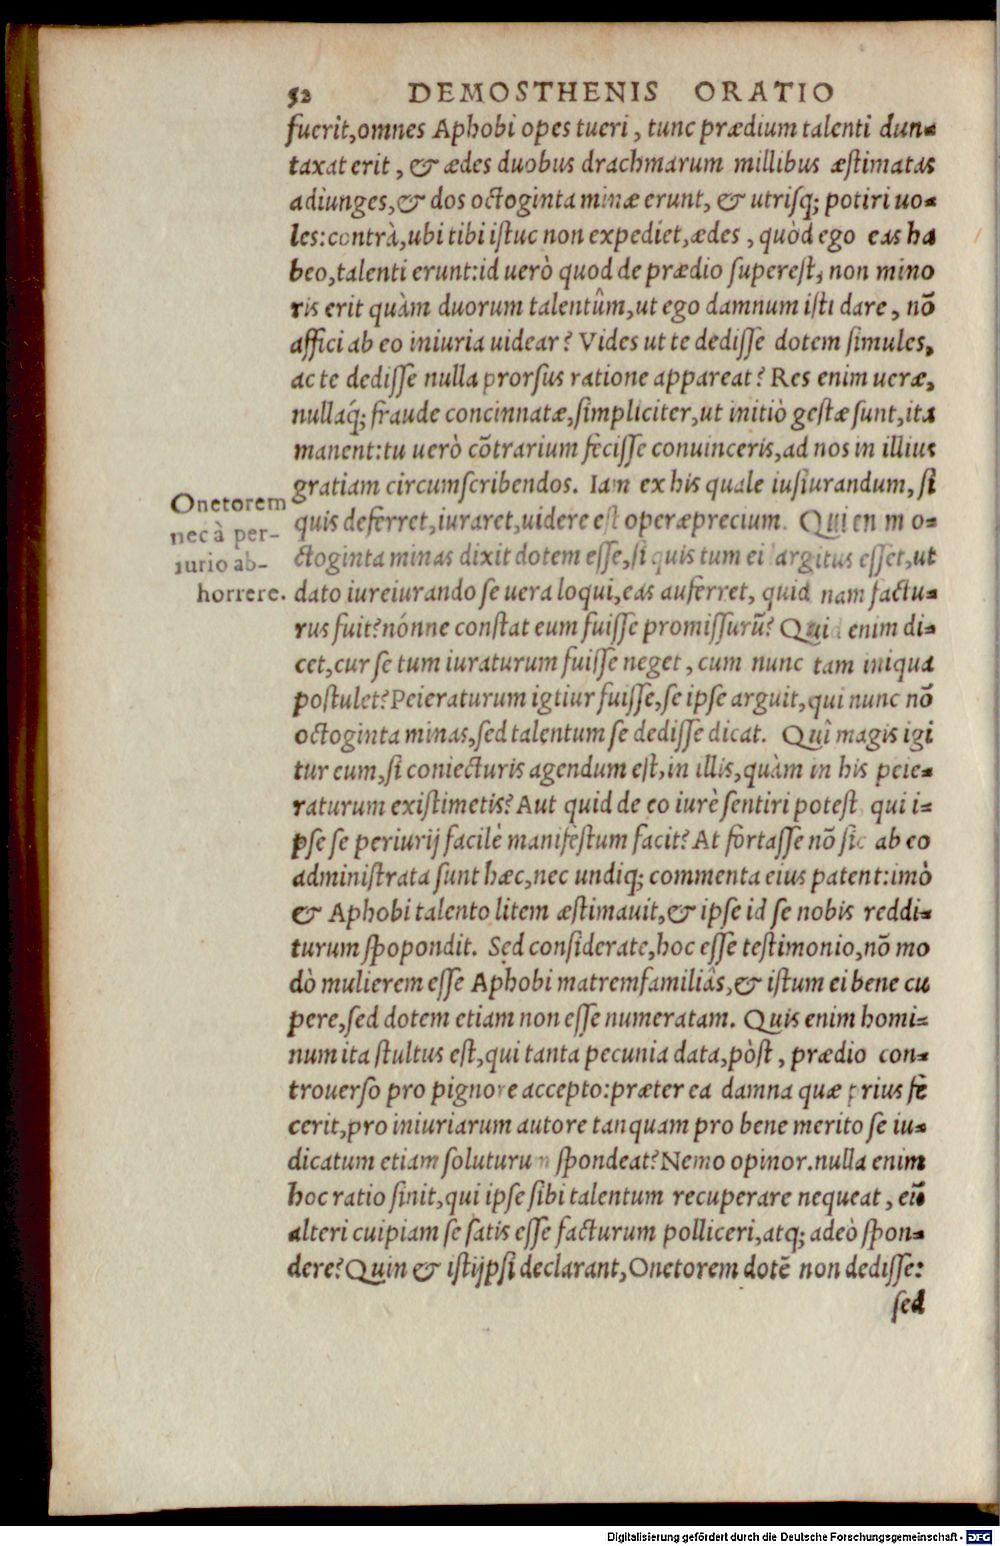 52 DEMOSTHENIS ORATIO
fuerit,omnes Aphobi opes tueri, tunc prædium talenti dun=
taxat erit, & ædes duobus drachmarum millibus æstimatas
adiunges,& dos octoginta minæ erunt, & utrisq; potiri uo=
les:contrà,ubi tibi istuc non expediet,ædes, quòd ego eas ha
beo,talenti erunt:id uerò quod de prædio superest, non mino
ris erit quàm duorum talentûm,ut ego damnum isti dare, nō
affici ab eo iniuria uidear? Vides ut te dedisse dotem simules,
ac te dedisse nulla prorsus ratione appareat? Res enim ueræ,
nullaq́; fraude concinnatæ,simpliciter,ut initiò gestæ sunt,ita
manent:tu uerò cōtrarium fecisse convinceris,ad nos in illius
gratiam circumscribendos. Iam ex his quale iusiurandum, si
quis deferret,iuraret,uidere est operæprecium. Qui en m o=
ctoginta minas dixit dotem esse,si quis tum ei largitus esset,ut
dato iureiurando se uera loqui,eas auferret, quid nam factu=
rus fuit?nónne constat eum fuisse promissurū? Quid enim di=
cet,cur se tum iuraturum fuisse neget, cum nunc tam iniqua
postulet?Peieraturum igtiur fuisse,se ipse arguit,qui nunc nō
octoginta minas,sed talentum se dedisse dicat. Quî magis igi
tur eum,si coniecturis agendum est,in illis,quàm in his peie=
raturum existimetis? Aut quid de eo iurè sentiri potest qui i=
pse se periurij facilè manifestum facit? At fortasse nō sic ab eo
administrata sunt hæc,nec undiq; commenta eius patent:imò
& Aphobi talento litem æstimauit,& ipse id se nobis reddi=
turum spopondit. Sed considerate,hoc esse testimonio,nō mo
dò mulierem esse Aphobi matremfamiliâs,& istum ei bene cu
pere,sed dotem etiam non esse numeratam. Quis enim homi=
num ita stultus est,qui tanta pecunia data,pòst, prædio con=
trouerso pro pignore accepto:præter ea damna quæ prius fe
cerit,pro iniuriarum autore tanquam pro bene merito se iu=
dicatum etiam soluturum spondeat?Nemo opinor.nulla enim
hoc ratio sinit,qui ipse sibi talentum recuperare nequeat, eū
alteri cuipiam se satis esse facturum polliceri,atq; adeò spon=
dere?Quin & istijpsi declarant,Onetorem dotē non dedisse:
sed
Onetorem
nec à per-
iurio ab-
horrere.
Digitalisierung gefördert durch die Deutsche Forschungsgemeinschaft - DFG